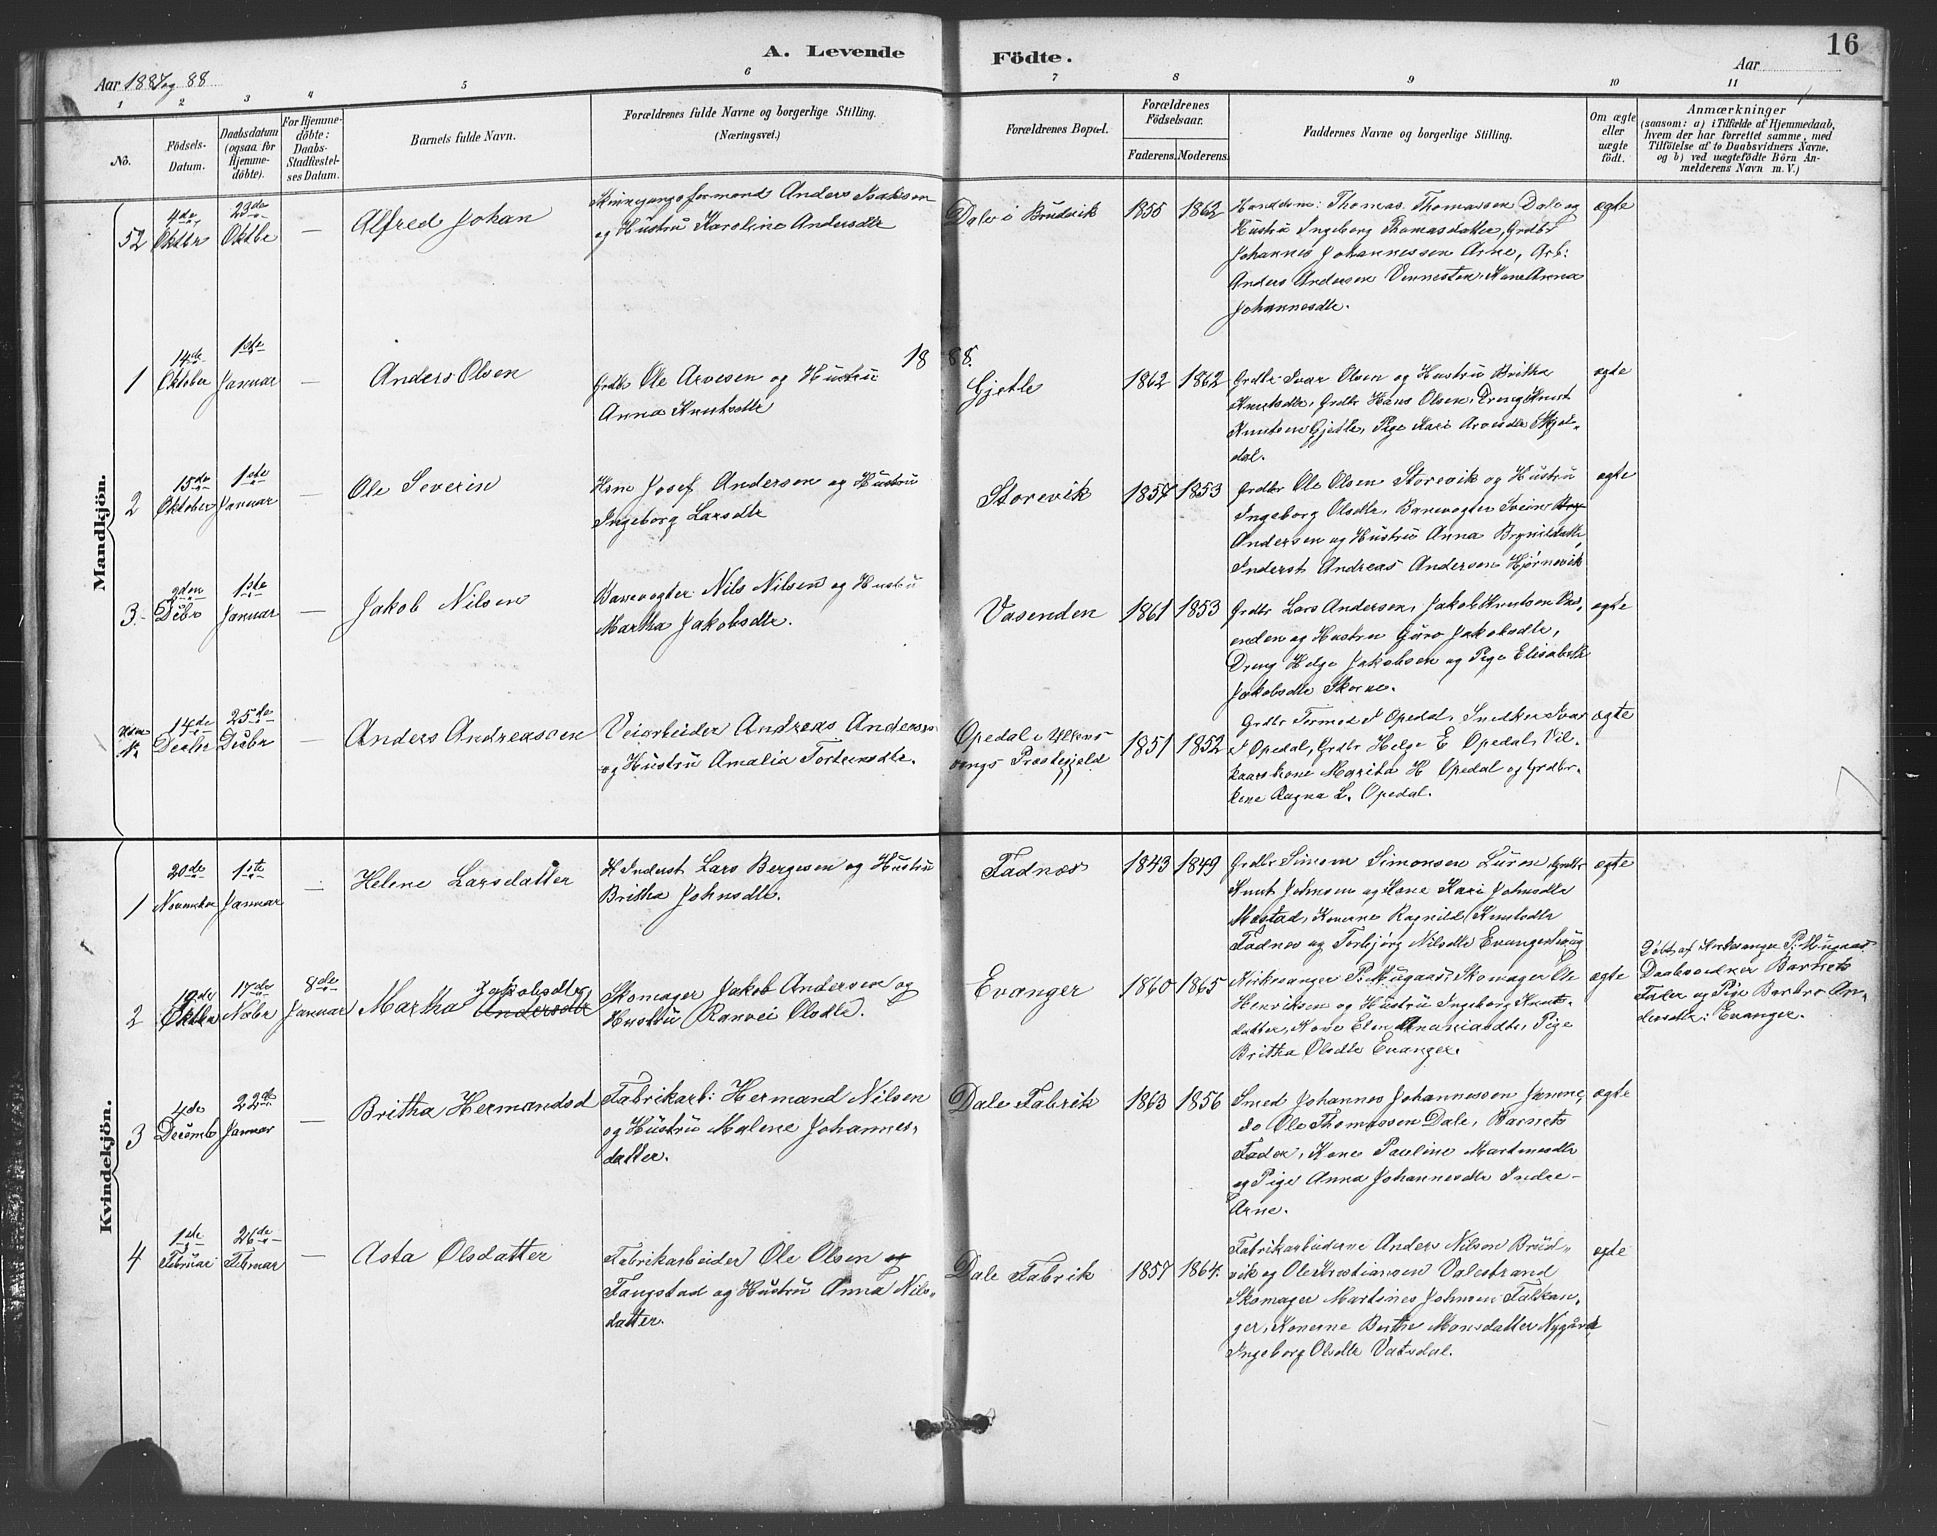 A. Levende Födte.
16
Aar 1887 og 88
Aar
1 2 3 4 5 6 7 8 9 10 11
No.
Födsels-Datum.
Daabsdatum (ogsaa for Hjemme-döbte).
For Hjemme-döbte: Daabs-Stadfæstel-ses Datum.
Barnets fulde Navn.
Forældrenes fulde Navne og borgerlige Stilling. (Næringsvei.)
Forældrenes Bopæl.
Forældrenes Födselsaar.
Faderens. Moderens.
Faddernes Navne og borgerlige Stilling.
Om ægte eller uægte födt.
Anmærkninger
(saasom: a) i Tilfælde af Hjemmedaab, hvem der har forrettet samme, med Tilföielse af to Daabsvidners Navne, og b) ved uægtefödte Börn An-melderens Navn m. V.)
Mandkjön.
52
4de Oktbr
29de Oktbr
—
Alfred Johan
formand Anders Isaksen
og Hustru Karoline Andersdtr
Dale i Bruvik
1855 1862
Thomas Thomassen Dale og
Hustru Ingeborg Thomasdatter, Grdbr
Johannes Johannessen Arne, Arb:
Anders Andersen Kone Anna
Johannesdtr.
ægte
1888.
1
14de Oktober
1ste Januar
—
Anders Olsen
Grdbr Ole Arvesen og Hustru
Anna Knutsdtr
Gjetle
1862 1862
Grdbr Ivar Olsen og Hustru Britha
Knutsdtr, Grdbr Hans Olsen, Dreng Knut
Knutsen Gjetle, Pige Kari Arvesdtr Skjel-
dal.
ægte
2
15de Oktober
1ste Januar
—
Ole Severin
Hsm Josef Andersen og Hustru
Ingeborg Larsdtr
Storevik
1857 1853
Grdbr Ole Olsen Storevik og Hustru
Ingeborg Olsdtr, Banevogter Svein
Andersen og Hustru Anna Brynildsdtr
Inderst Andreas Andersen Hjørnevik
ægte
3
2den Dcbr
1ste Januar
—
Jakob Nilsen
Banevogter Nils Nilsen og Hustru
Martha Jakobsdtr.
Vasenden
1861 1853
Grdbr Lars Andersen, Jakob Knutsen Vas-
enden og Hustru Guro Jakobsdtr,
Dreng Helge Jakobsen og Pige Elisabeth
Jakobsdtr
ægte
14de Decbr
25de Decbr
—
Anders Andreassen
Veiarbeider Andreas Andersen
og Hustru Amalia Torbensdtr.
Opedal i Ullens-
vangs Præstegjeld
1851 1852
Grdbr Tormod J Opedal, Snedker Ivar
J Opedal, Grdbr Helge E Opedal, Vil-
kaarskone Marita H Opedal og Grdbr-
kone Ragna L. Opedal.
ægte
Kvindekjön.
1
20de November
1ste Januar
—
Helene Larsdatter
H Inderst Lars Bergesen og Hustru
Britha Johnsdtr.
Fadnes
1843 1849
Grdbr Simon Simonsen Grdbr
Knut Johnsen og Kone Kari Johnsdtr
Mestad, Konerne Ragnild Knutsdtr
Fadnes og Torbjørg Nilsdtr
ægte
2
Oktbr
17de Novbr
8de Januar
Martha Jakobsdtr Andersdtr
Skomager Jakob Andersen og
Hustru Ranvei Olsdtr.
Evanger
1860 1865
Kirkesanger P. Mugaas, Skomager Ole
Henriksen og Hustru Ingeborg Knuts-
datter, Kone Elen Ananiasdtr, Pige
Britha Olsdtr Evanger.
ægte
Døbt af Kirkesanger P. Mugaas
Daabsvidner Barnets
Fader og Pige Barbro An-
dersdtr: Evanger.
3
4de Decemb
22de Januar
—
Britha Hermandsd
Fabrikarb: Hermand Nilsen
og Hustru Malene Johannes-
datter.
Dale Fabrik
1863 1856
Smed Johannes Johannessen Samme,
do Ole Thomassen Dale, Barnets
Fader, Kone Pauline Martinesdtr
og Pige Anna Johannesdtr Indre-
Arne.
ægte
4
1ste Februar
26de Februar
—
Asta Olsdatter
Fabrikarbeider Ole Olsen og
Fangstad og Hustru Anna Nils-
datter.
Dale Fabrik
1857 1864.
Fabrikarbeiderne Anders Nilsen Brud-
vik og Ole Kristiansen Valestrand
Skomager Martines Johnsen Falkan-
ger, Konerne Berthe Monsdatter Nygård
Ingeborg Olsdtr Vatsdal.
ægte